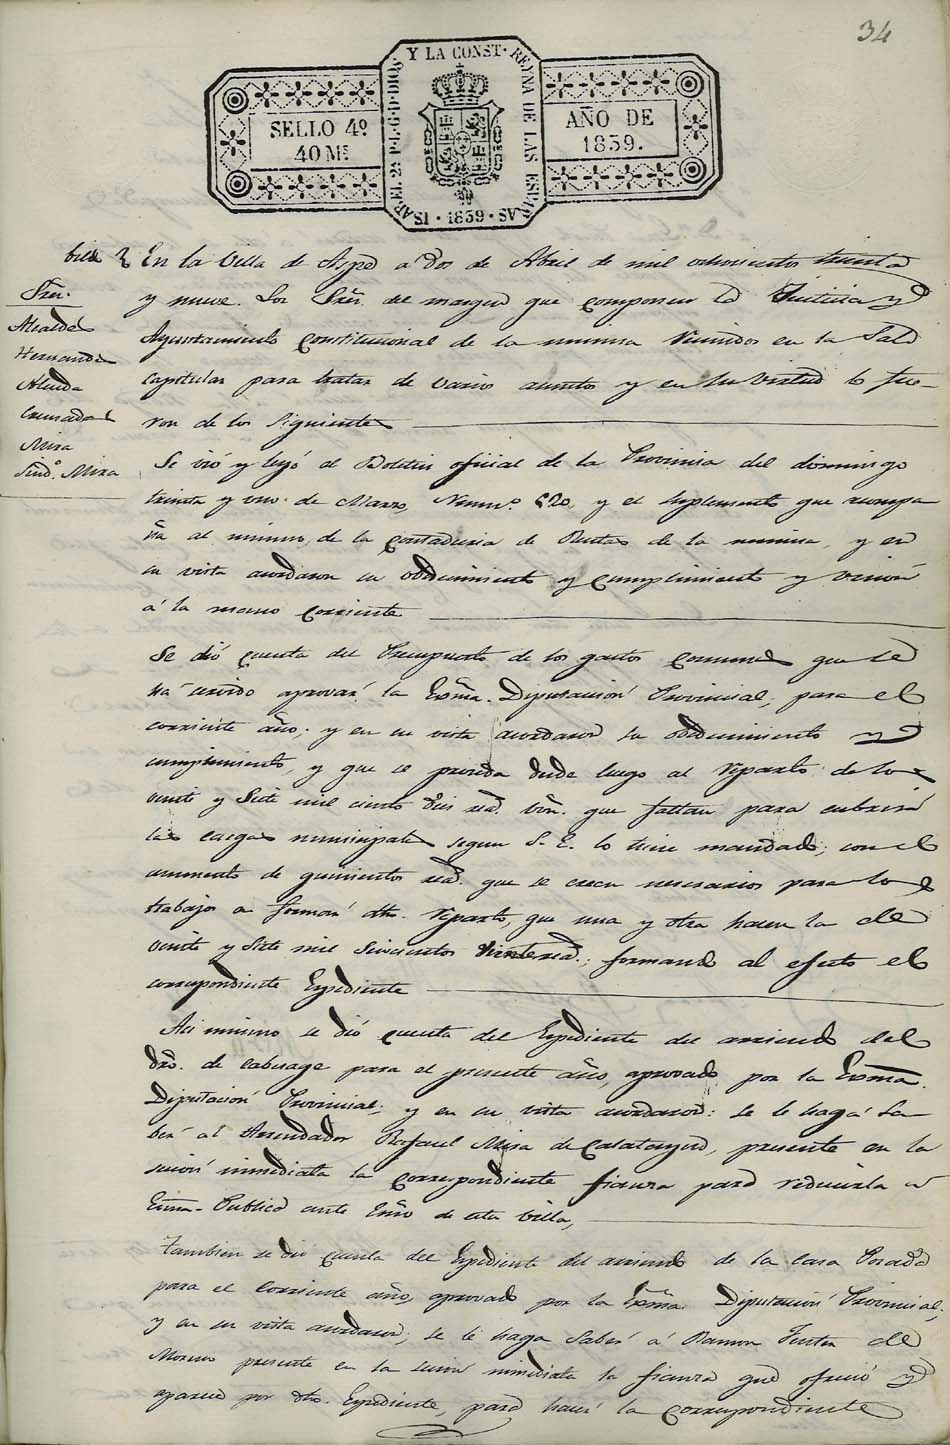 34
SELLO 4º
40 Ms
YSABEL 2ª P.L.G.D.DIOS Y LA CONST. REYNA DE LAS ESPAÑAS
1839
AÑO DE
1839.
En la Villa de Aspe a dos de Abril de mil ochocientos treinta
y nueve. Los Sres. del margen que componen la Justicia y
Ayuntamiento Constitucional de la misma reunidos en la Sala
capitular para tratar de varios asuntos y en su virtud lo fue-
ron de los siguientes
Sres.
Alcalde
Hernandez
Alenda
Cremades
Mira
Sindº. Mira
Se vió y leyó el Boletin oficial de la Provincia del domingo
treinta y uno de Marzo, Numº. 620, y el suplemento que acompa
ña al mismo, de la contaduria de Rentas de la misma, y en
su vista acordaron su obedecimiento y cumplimiento y union
á la mano corriente
Se dió cuenta del Presupuesto de los gastos comunes que se
há servido aprovar la Exma. Diputacion Provincial, para el
corriente año; y en su vista acordaron su obedecimiento y
cumplimiento, y que se proceda desde luego al reparto de los
veinte y siete mil ciento diez rea. von. que faltan para cubrir
las cargas municipales segun S. E. lo tiene mandado; con el
aumento de quinientos rea. que se creen necesarios para los
trabajos a formar dho. reparto, que una y otra hacen la de
veinte y siete mil seiscientos rea.; formando al efecto el
correspondiente Expediente
Asi mismo se dió cuenta del Expediente del arriendo del
dro. de cabesage para el presente año, aprovado por la Exma.
Diputacion Provincial; y en su vista acordaron: se le haga sa
ber al Arrendador Rafael Mira de Calatayud, presente en la
secion inmediata la correspondiente fianza para reducirla a
Escra. Publica ante Esno de esta villa,
Tambien se dió cuenta del Expediente del arriendo de la casa Posada
para el corriente año, aprovado por la Exma. Diputacion Provincial;
y en su vista acordaron, se le haga saber á Ramon de
Moreno presente en la secion inmediata la fianza que ofreció y
aparece por dho. Expediente, para hacer la correspondiente